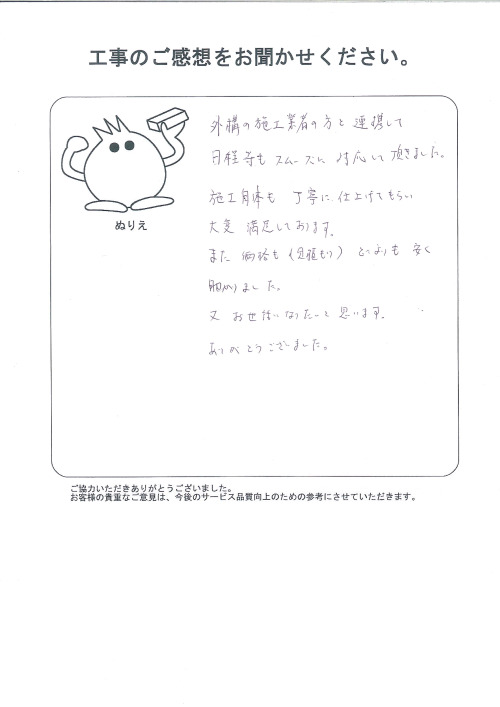 工事のご感想をお聞かせください。
外構の施工業者の方と連携して
日程等もスムーズに対応して頂きました。
施工自体も丁寧に仕上げてもらい
大変満足しております。
ぬりえ
また価格も(見積もり)どこよりも安く
助かりました。
又お世話になりたいと思います。
ありがとうございました。
ご協力いただきありがとうございました。
お客様の貴重なご意見は、今後のサービス品質向上のための参考にさせていただきます。